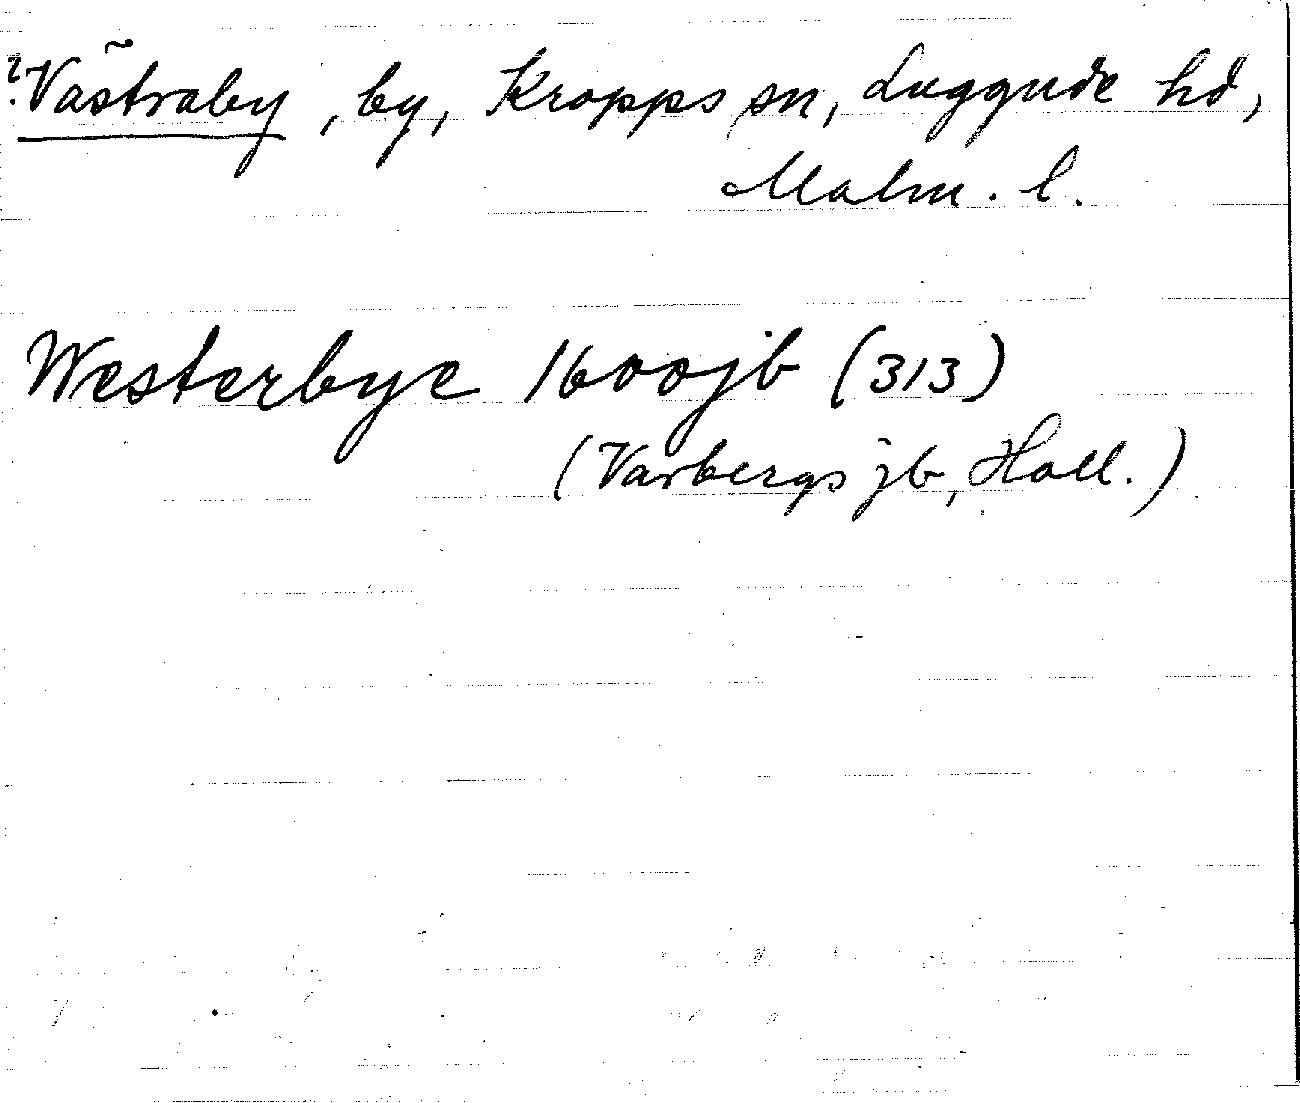 ? Västraby, by, Kropps sn, Luggude hd,
Malm. l.
Westerbye 1600jb (313)
(Varbergs jb, Hall.)